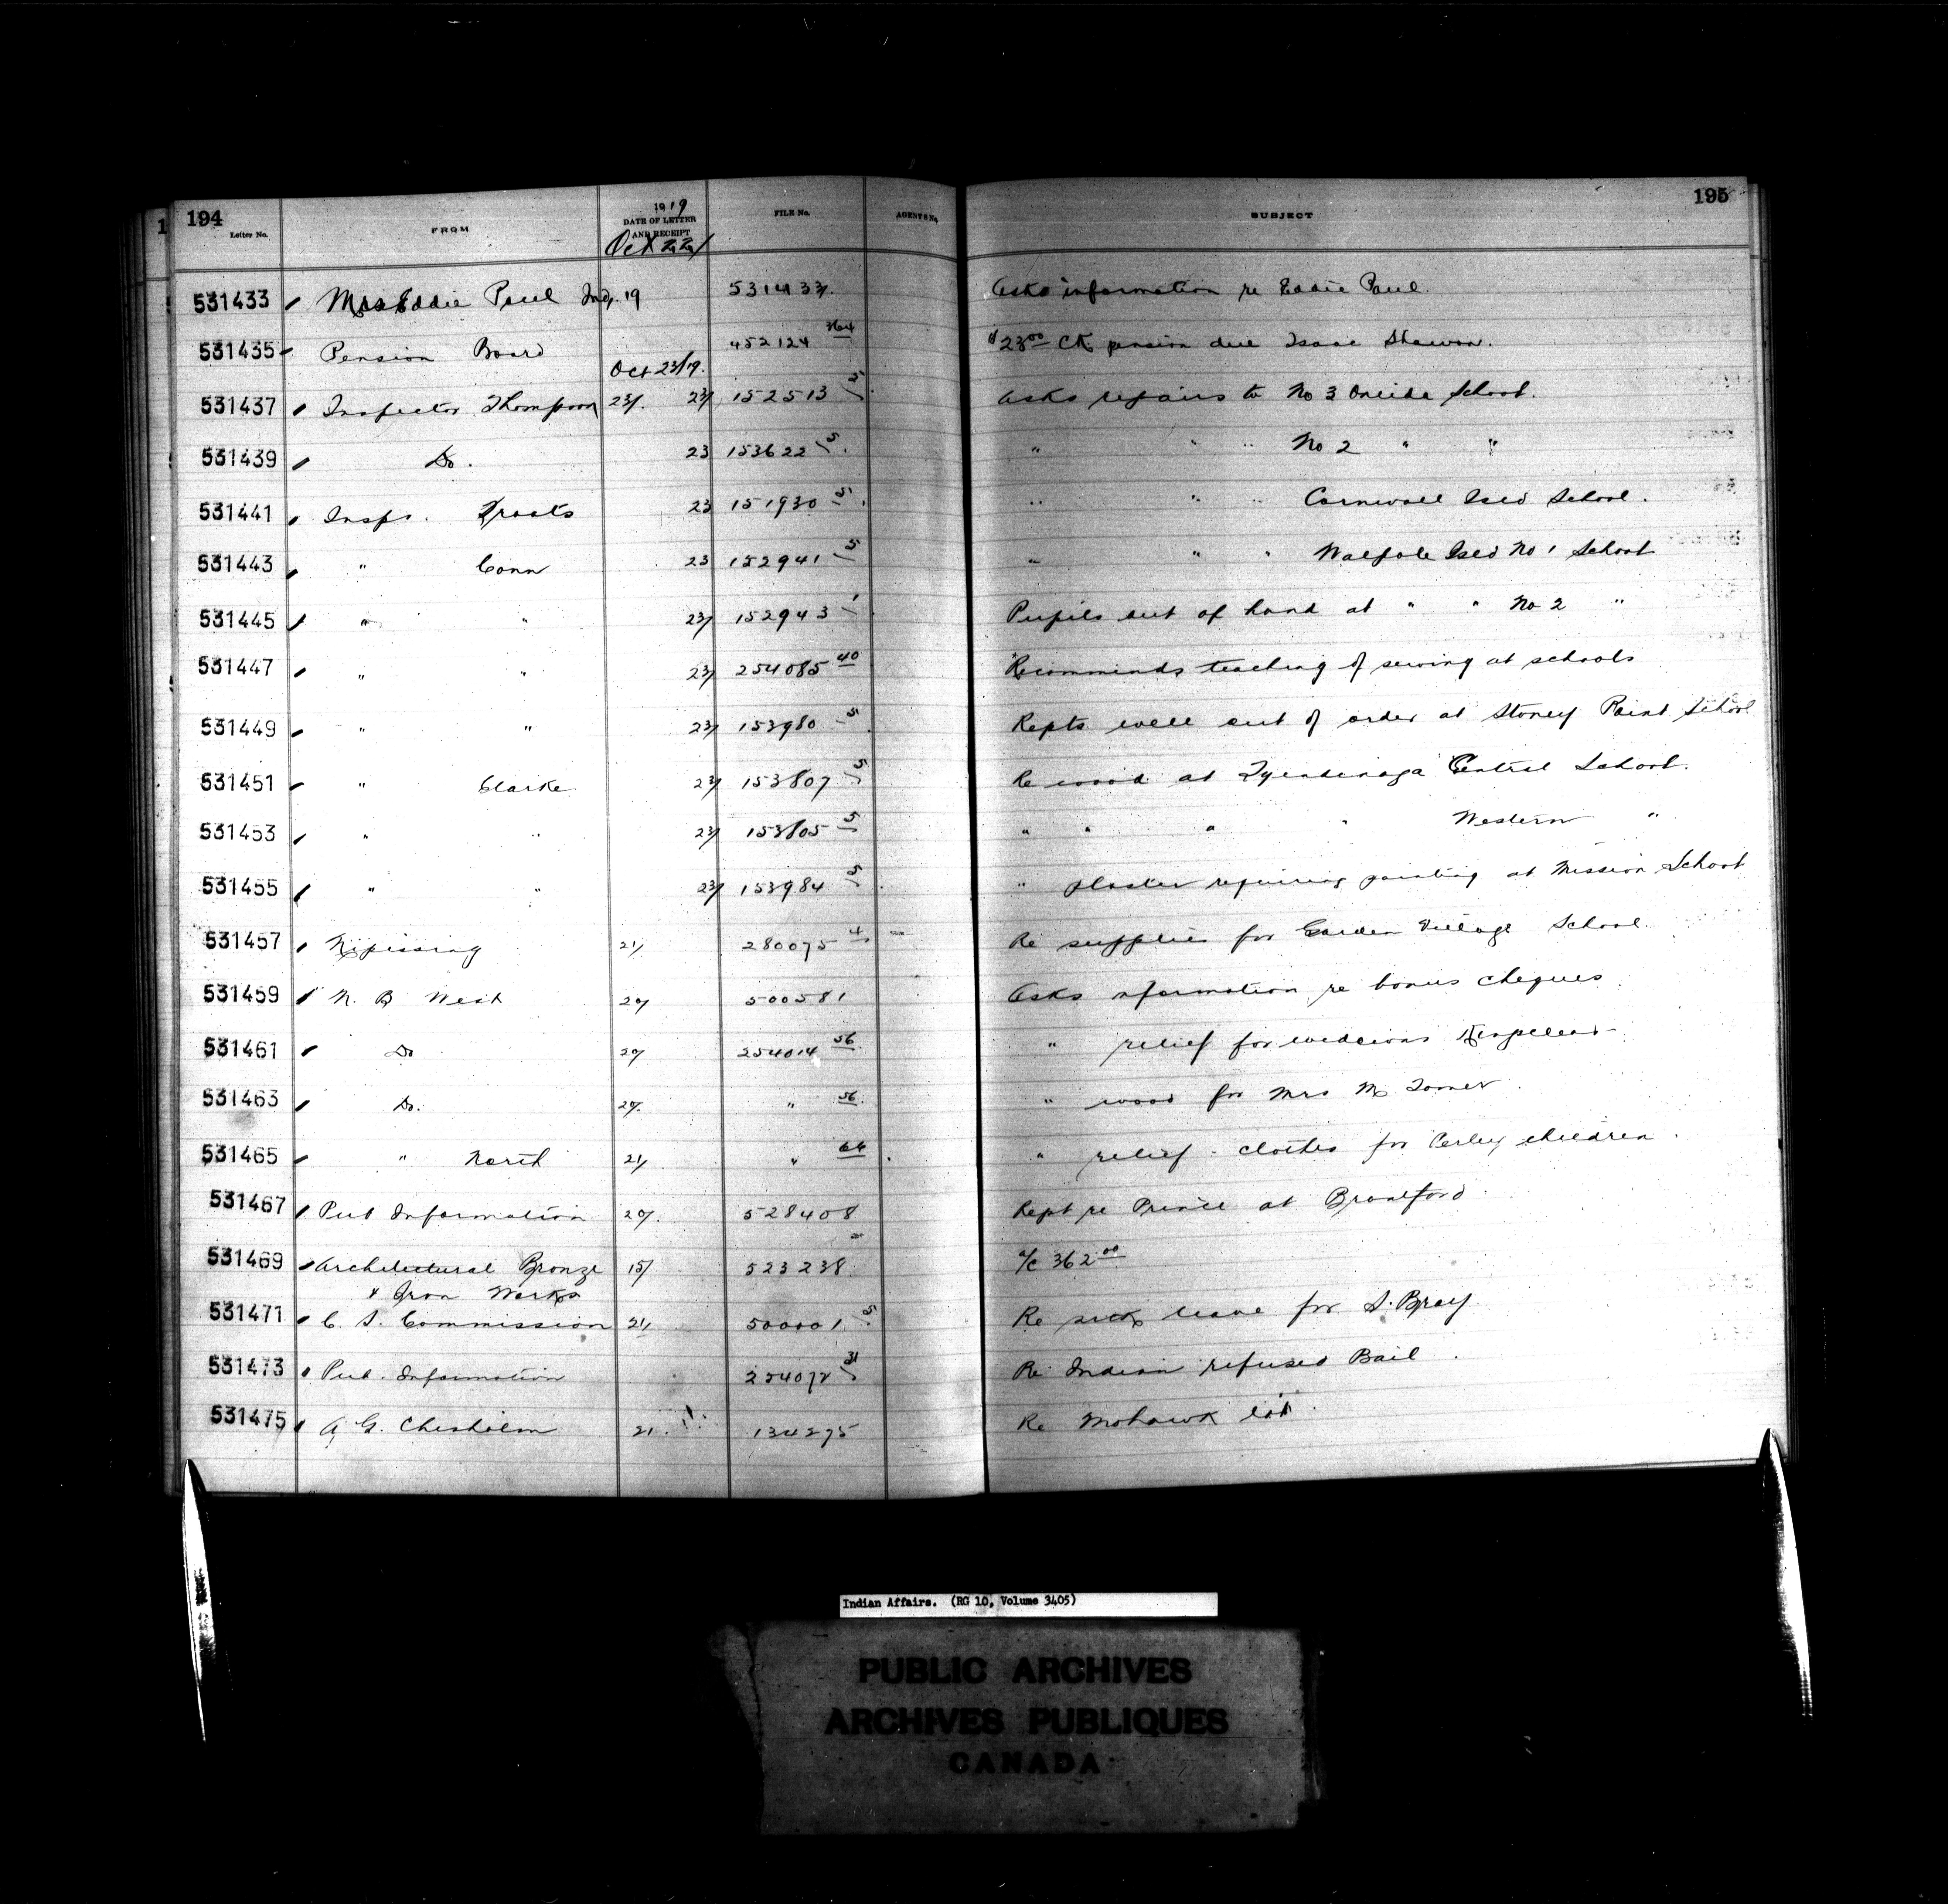 194
195
1919
Letter No. FROM DATE OF LETTER AND RECEIPT FILE No. AGENTS No. SUBJECT
Oct 22/
531433 Mrs Eddie Paul Ind. 19 531433. Asks information re Eddie Paul.
531435 Pension Board 452124 364 $23.00 Ck pension due Isaac Shawon.
Oct 23/19.
531437 Inspector Thompson 23/. 23/ 152513 5 Asks repairs to No 3 Oneida School.
531439 Do. 23 153622 5. " " " No 2 " "
531441 Insp. 23 151930 5. " " " Cornwall Isld School.
531443 " Conn 23 152941 5 " " " Walpole Isld No 1 School
531445 " " 23/ 152943 1 Pupils out of hand at " " No 2 "
531447 " " 23/ 254085 40 Recommends teaching of sewing at schools
531449 " " 23/ 153980 5 Repts well out of order at Stoney Point School
531451 " Clarke 23/ 153807 5 Re wood at Tyendinaga Central School.
531453 " " 23/ 153805 5 " " " " Western "
531455 " " 23/ 153984 5 " plaster repairing painting at Mission School
531457 Nipissing 21/ 280075 4 Re supplies for Garden Village School.
531459 N. B West 20/ 500581 Asks information re bonus cheques
531461 Do 20/ 254014 56 " relief for
531463 Do. 20/. " 56. " wood for Mrs M Tomer.
531465 " North 21/ " 64 " relief - clothes for children.
531467 Pub Information 20/. 528408 Rept re Prince at Brantford
531469 Architectural Bronze 15/ 523238 a/c 362.00
& Iron Works
531471 C. S. Commission 21/ 500001 5. Re sick leave for S. Bray
531473 Pub. Information 254072 31 Re Indian refused Bail.
531475 A G. Chisholm 21. 134275 Re Mohawk lot.
Indian Affairs. (RG 10, Volume 3405)
PUBLIC ARCHIVES
ARCHIVES PUBLIQUES
CANADA